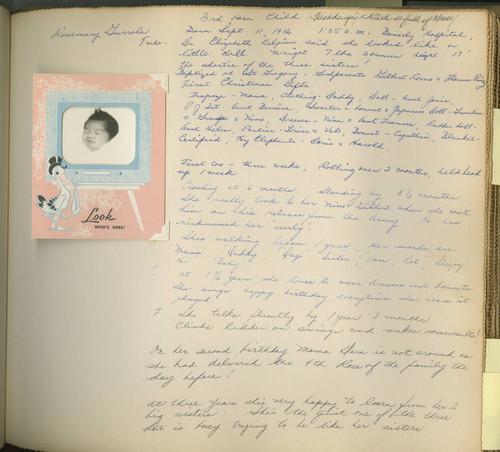 3rd Born Child (Wednesday's child is full of Woe)
Rosemary Gurrola
Born Sept 11, 1946 1:35 a.m. Beverly Hospital,
Dr. Elizabeth said she looked like a
little doll. Weight 7 lbs 2 ounces height 19"
The shortie of the three sisters!
Baptized at St. Gregory - Godparents Gilbert and
First Christmas Gifts
- Mama, Daddy, Doll - Aunt Josie,
P.J. Set - Aunt Sweater & Bonnet & Japanese Doll - Grandma
& Grandpa & Nino, Dresses - Nina & Aunt Frances, Rubber doll -
Aunt Helen, Panties - Louise & Bonnet - Cynthia, Blanket -
Certified, Toy Elephants - Doris & Harold.
First too - three weeks, Rolling over 2 months, held head
up 1 week
Crawling at 6 months. Standing by 8½ months
She really took to her Nino Gilbert when she met
him on his release from the Army. He has
nicknamed her
She's walking before 1 year. Her words are
Mama, Daddy, Sister,
Hi, Baby
at 1½ years she loves to wear dresses and bonnets
She sings happy birthday everytime she hears it
played
She talks fluently by 1 year 8 months
Climbs ladder on swings and makes somersaults!
On her second birthday Mama Dora is not around as
she had delivered the 4th Rose of the family the
day before!
at three years she's very happy to learn from her 2
big sisters. She's the quiet one of the three
but is busy trying to be like her sisters
Look
WHO'S HERE!